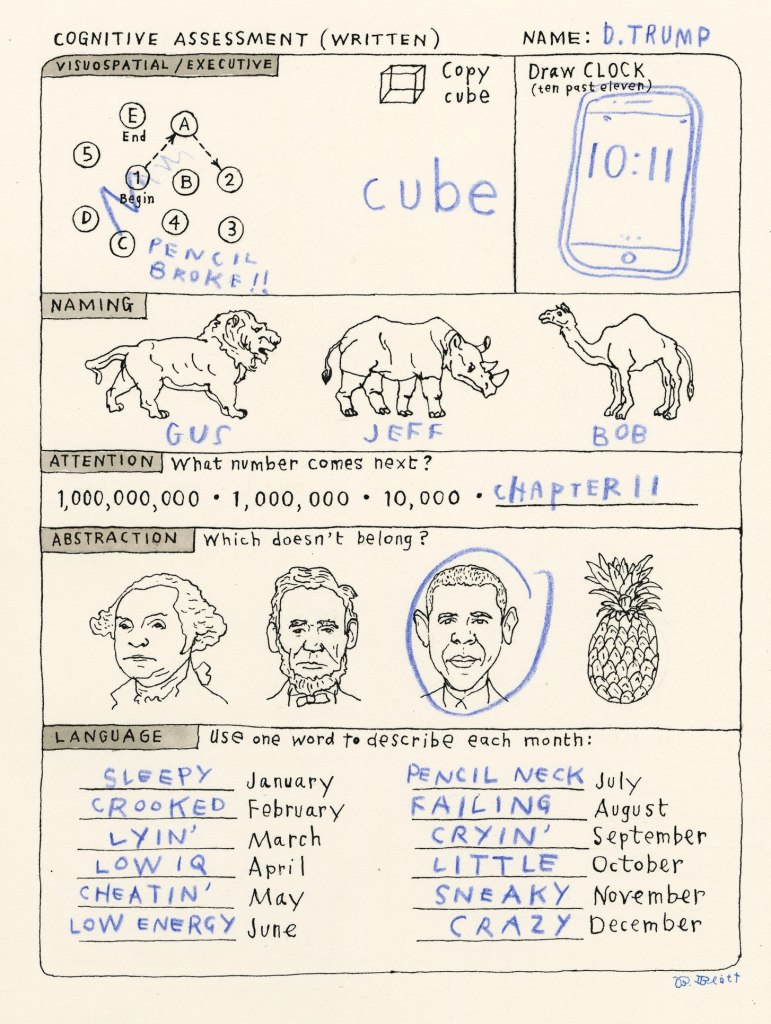 COGNITIVE ASSESSMENT (WRITTEN)
NAME: D. TRUMP
VISUOSPATIAL / EXECUTIVE
Copy
cube
Draw CLOCK
(ten past eleven)
E
End
A
5
1
Begin
B
2
D
C
4
3
PENCIL
BROKE!!
cube
10:11
NAMING
GUS
JEFF
BOB
ATTENTION What number comes next?
1,000,000,000 • 1,000,000 • 10,000 • CHAPTER 11
ABSTRACTION Which doesn't belong?
LANGUAGE Use one word to describe each month:
SLEEPY January
CROOKED February
LYIN' March
LOW IQ April
CHEATIN' May
LOW ENERGY June
PENCIL NECK July
FAILING August
CRYIN' September
LITTLE October
SNEAKY November
CRAZY December